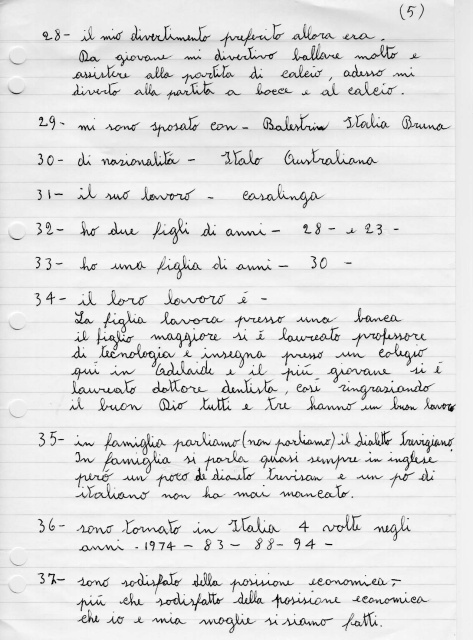 (5)
28- il mio divertimento preferito allora era.
Da giovane mi divertivo ballare molto e
assistere alla partita di calcio, adesso mi
diverto alla partita a bocce e al calcio.
29- mi sono sposato con - Balestrin Italia Bruna
30- di nazionalità - Italo Australiana
31- il suo lavoro - casalinga
32- ho due figli di anni - 28 - e 23 -
33- ho una figlia di anni - 30 -
34- il loro lavoro é -
La figlia lavora presso una banca
il figlio maggiore si é laureato professore
di tecnologia e insegna presso un colegio
qui in Adelaide e il piú giovane si é
laureato dottore dentista, cosí ringrasiando
il buon Dio tutti e tre hanno un buon lavoro
35- in famiglia parliamo (non parliamo) il dialetto trevigiano.
In famiglia si parla quasi sempre in inglese
peró un poco de dialeto trevisan e un pó di
italiano non ha mai mancato.
36- sono tornato in Italia 4 volte negli
anni - 1974 - 83 - 88 - 94 -
37- sono sodisfato della posisione economica;-
piú che sodisfatto della posisione economica
che io e mia moglie si siamo fatti.